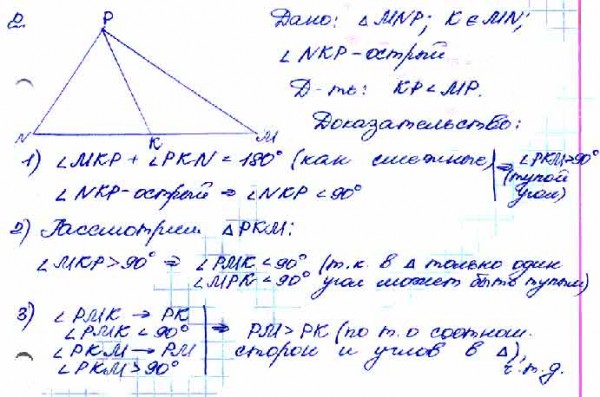 2.
P
N K M
Дано: △MNP; K ∈ MN;
∠NKP-острый
Д-ть: KP < MP.
Доказательство:
1) ∠MKP + ∠PKN = 180° (как смежные) ⇒ ∠PKM > 90°
(тупой
угол)
∠NKP-острый ⇒ ∠NKP < 90°
2) Рассмотрим △PKM:
∠MKP > 90° ⇒ ∠PMK < 90° (т.к. в △ только один
∠MPK < 90° угол может быть тупым)
3) ∠PMK → PK
∠PMK < 90°
∠PKM → PM
∠PKM > 90°
⇒ PM > PK (по т.о соотнош.
сторон и углов в △),
ч.т.д.